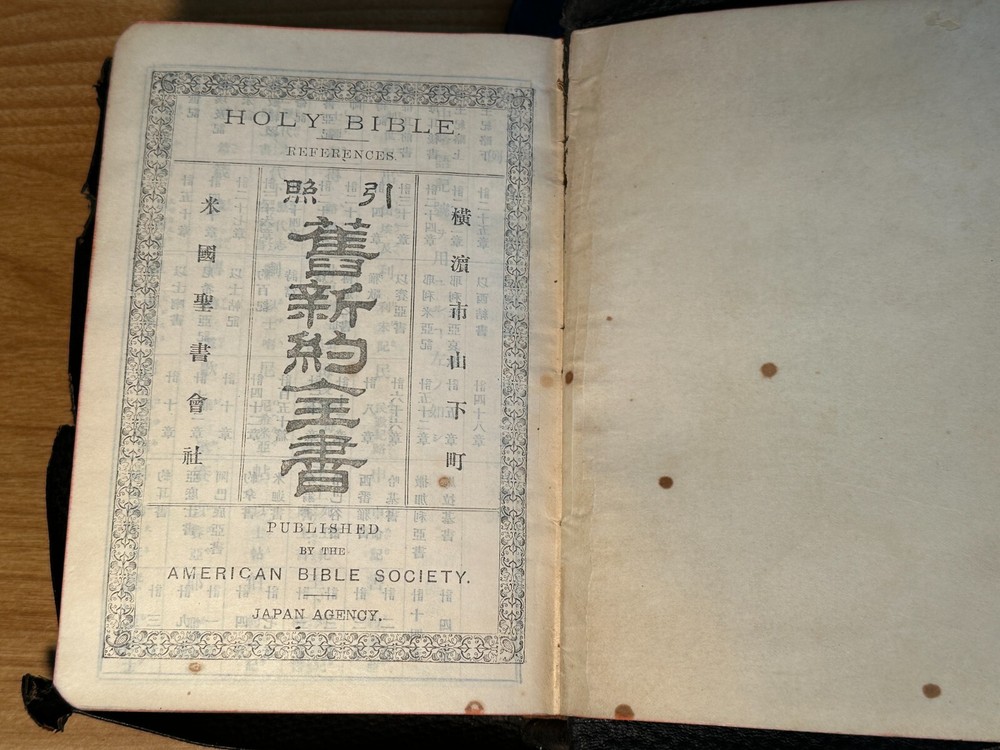 HOLY BIBLE.
REFERENCES.
橫濵市山下町
引照
舊新約全書
米國聖書會社
PUBLISHED
BY THE
AMERICAN BIBLE SOCIETY.
JAPAN AGENCY.